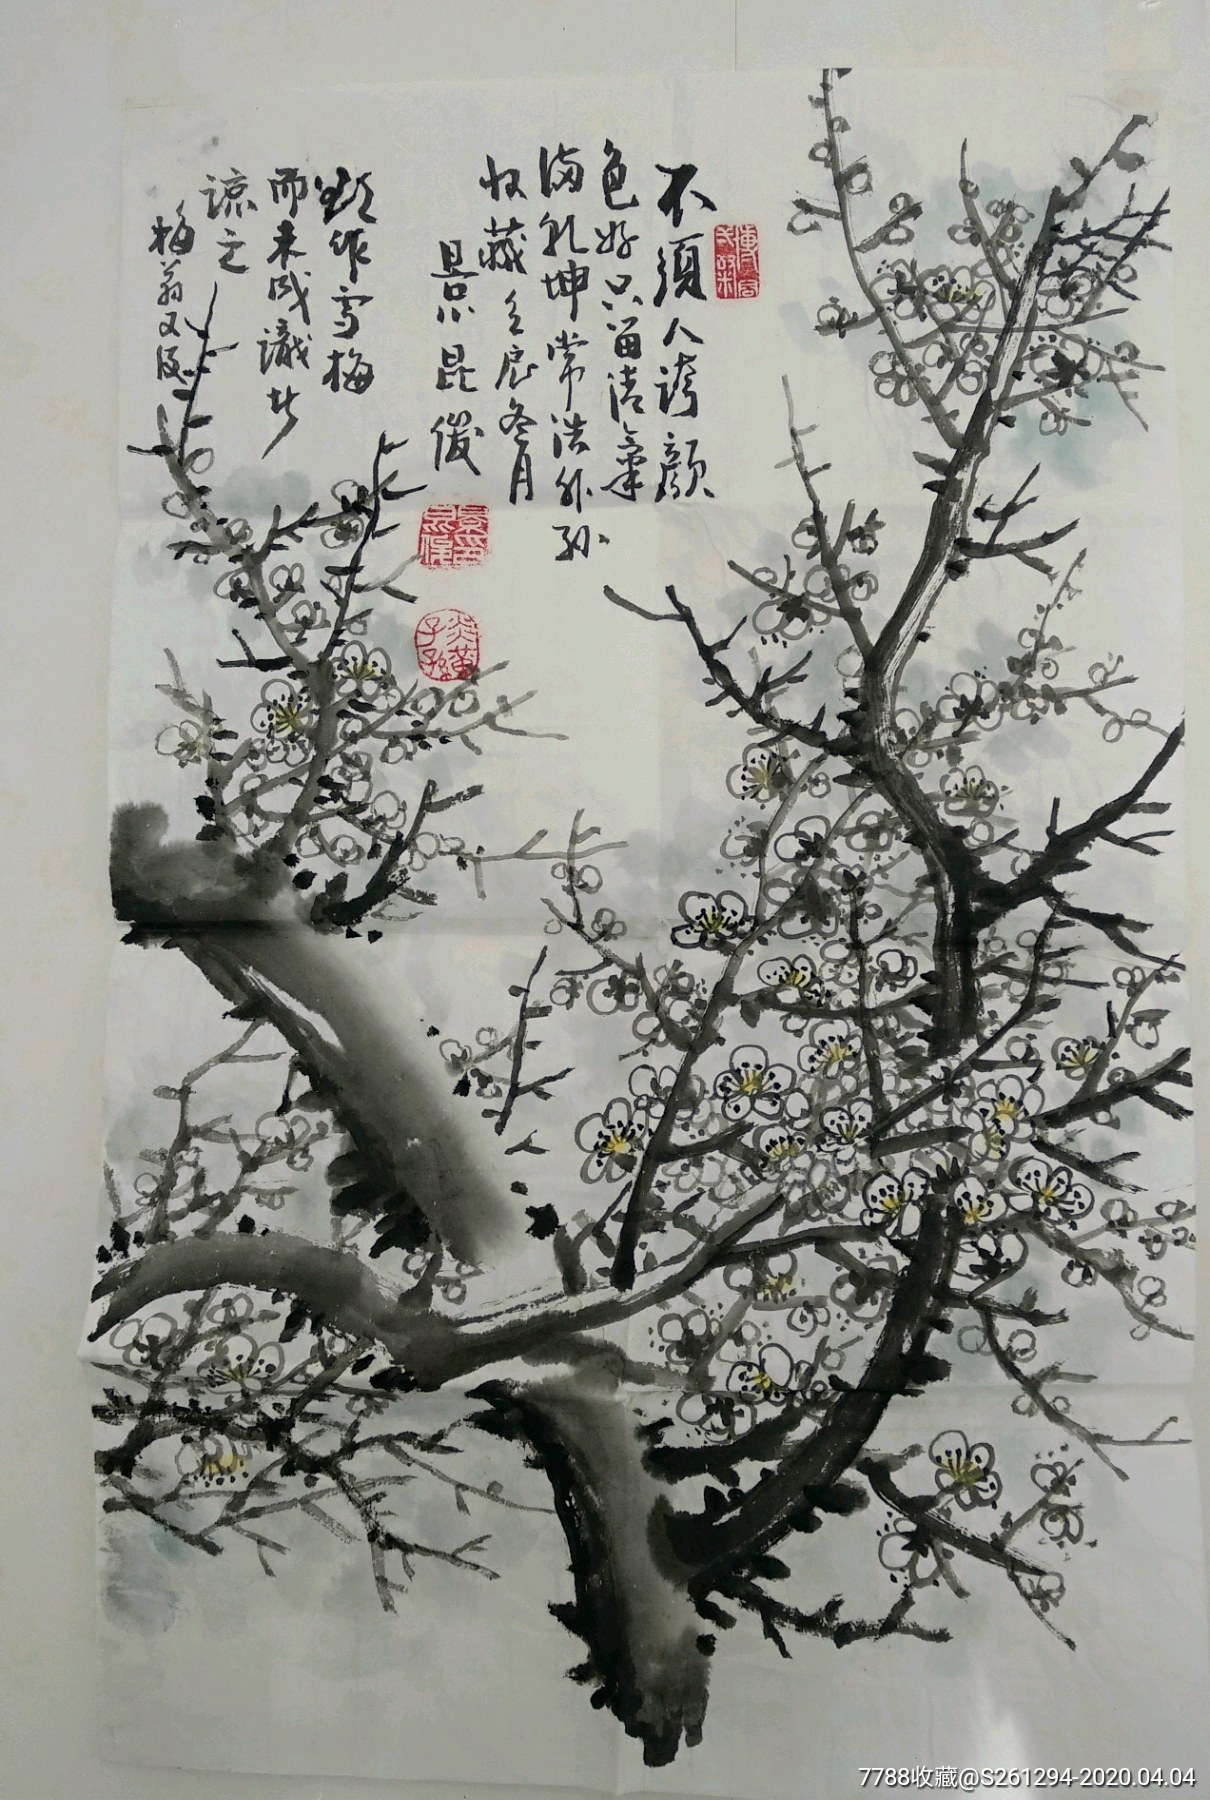 不须人誇颜
色好只留清氣
满乾坤常浩外孙
收藏壬辰冬月
景昆俊
欲作雪梅
而未成識者
諒之
梅翁又题
7788收藏@S261294-2020.04.04